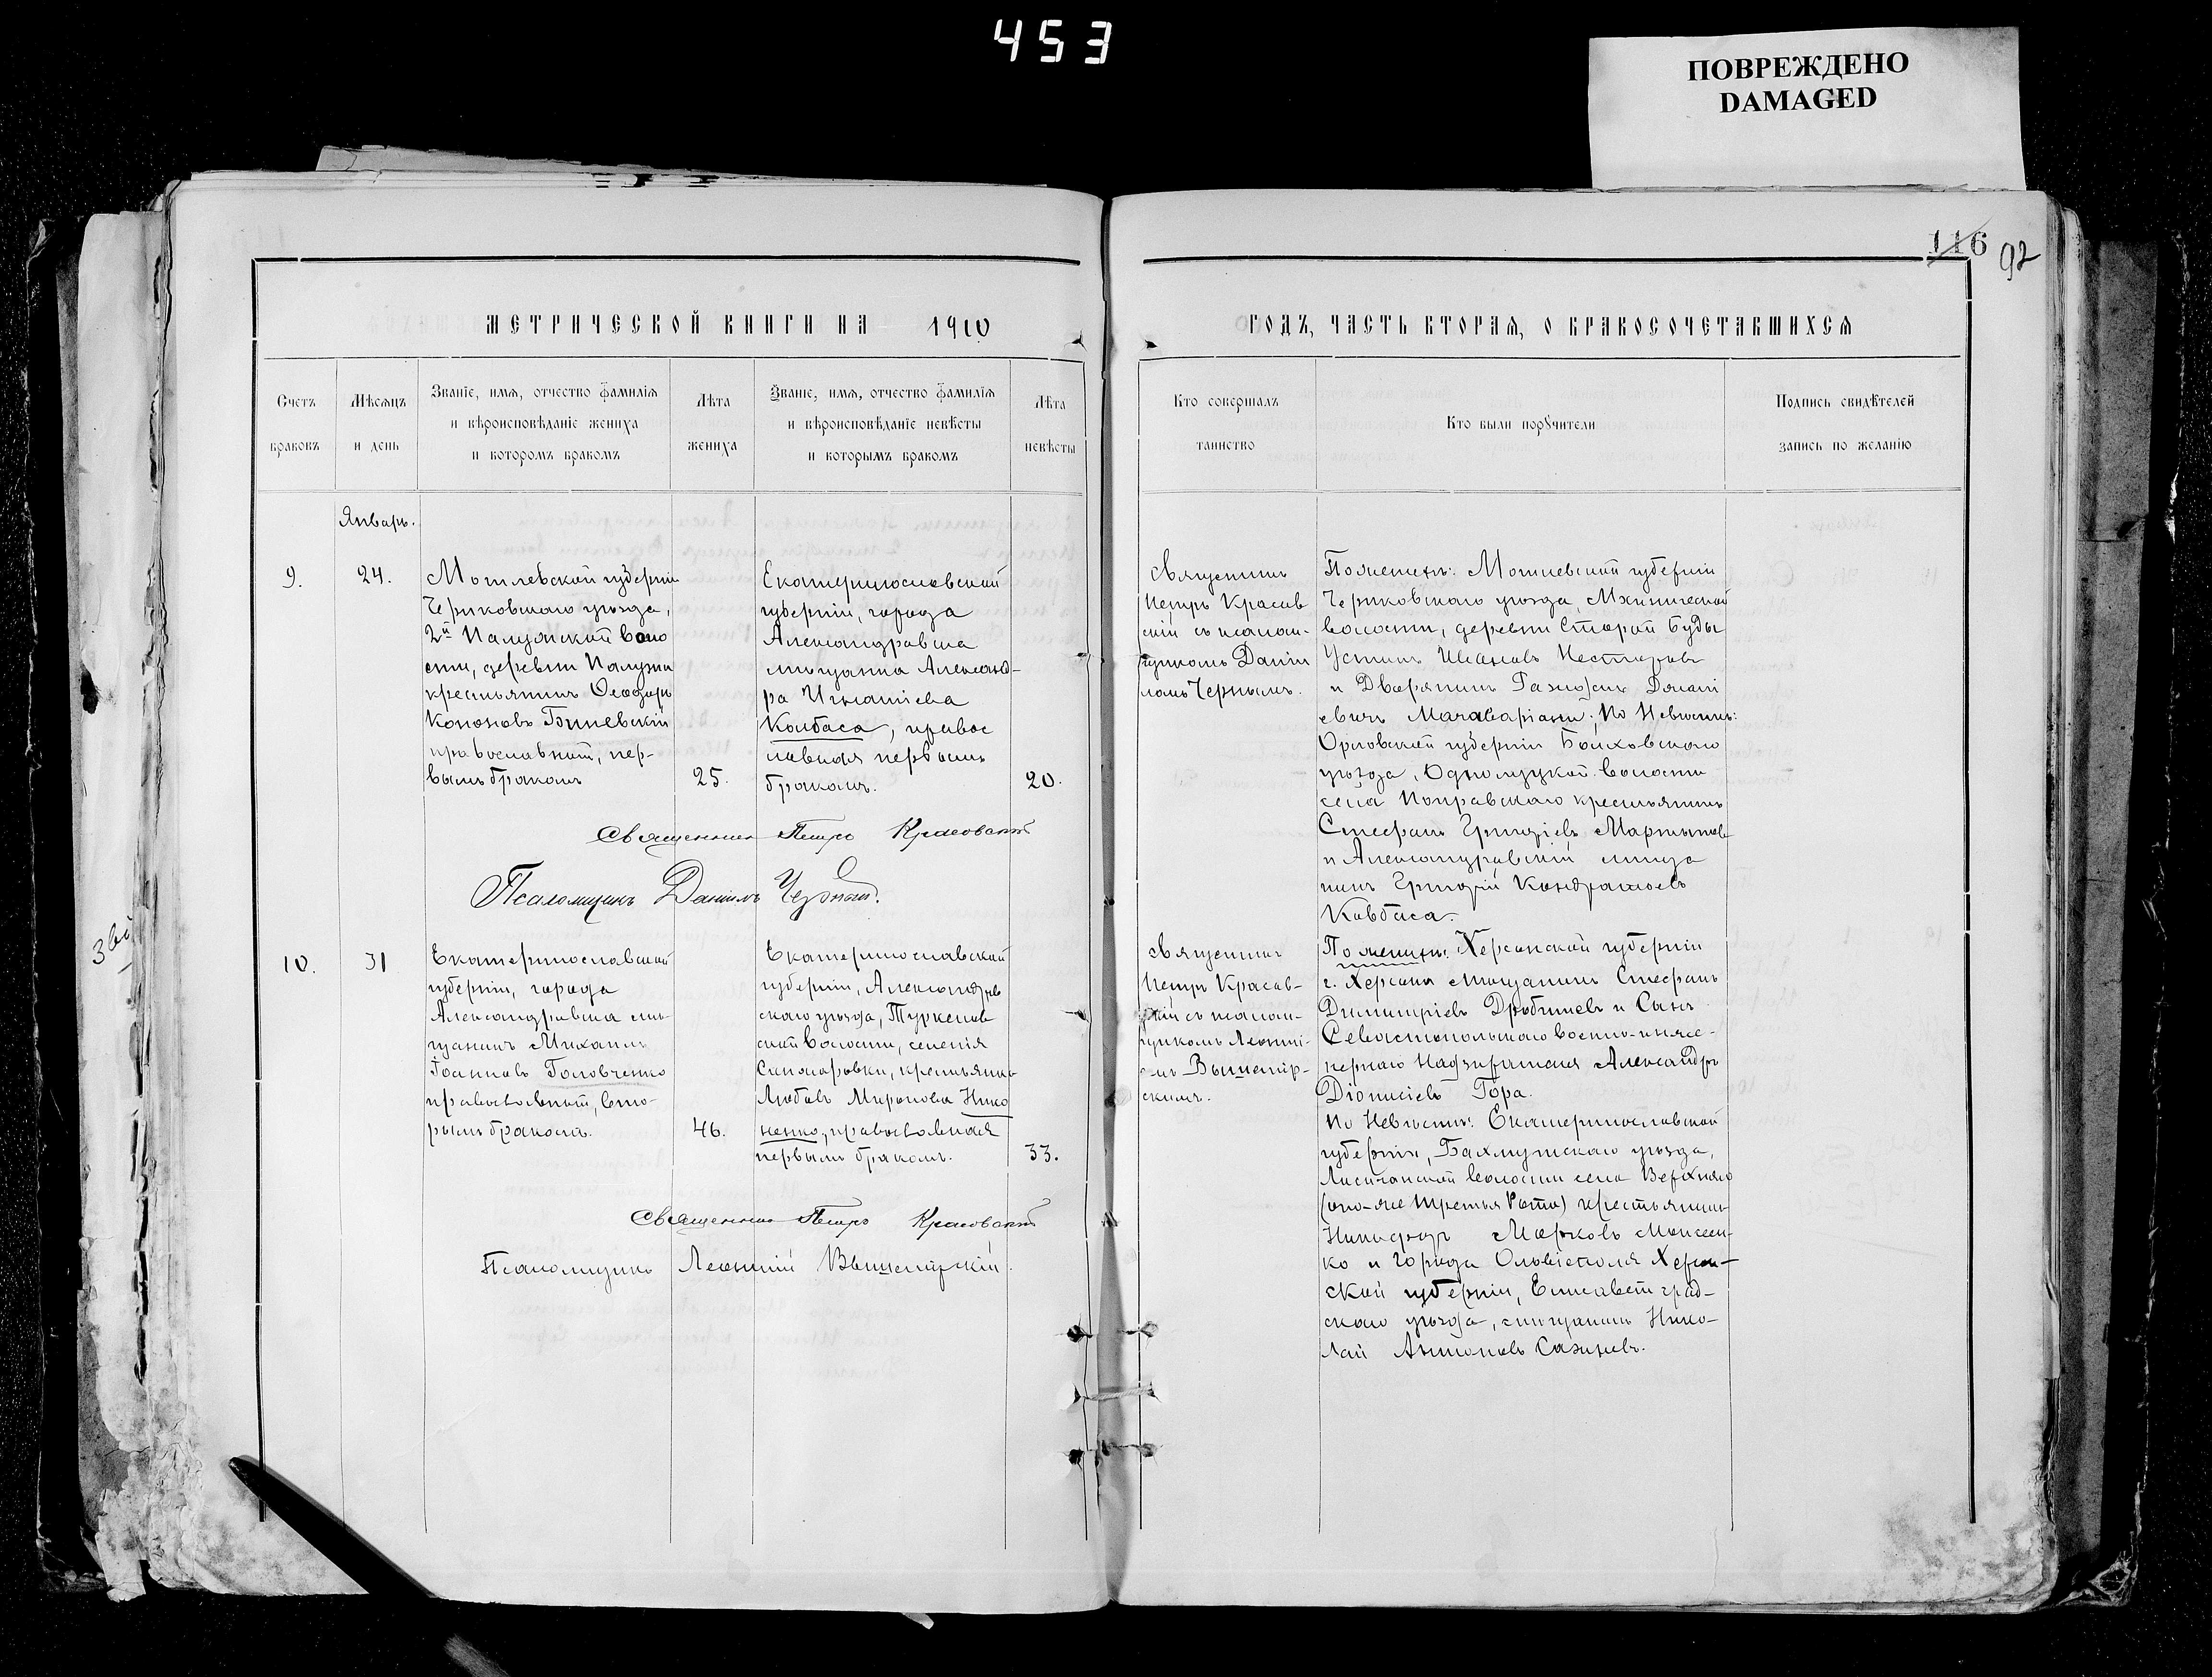 453
ПОВРЕЖДЕНО
DAMAGED
116 92
МЕТРИЧЕСКОЙ КНИГИ НА 1910
ГОДЪ, ЧАСТЬ ВТОРАЯ, О БРАКОСОЧЕТАВШИХСЯ
Счетъ
браковъ
Мѣсяцъ
и день
Званіе, имя, отчество фамилія
и вѣроисповѣданіе жениха
и которомъ бракомъ
Лѣта
жениха
Званіе, имя, отчество фамилія
и вѣроисповѣданіе невѣсты
и которымъ бракомъ
Лѣта
невѣсты
Кто совершалъ
таинство
Кто были поручители
Подпись свидѣтелей
запись по желанію
Январь.
9.
24.
Могилевской губерніи
Чериковскаго уѣзда,
2й Палужской воло
сти, деревни Палужи
крестьянинъ Ѳеодоръ
Кононовъ
православный, пер-
вымъ бракомъ
25.
Екатеринославской
губерніи, города
Александровска
мѣщанка Александ-
ра Игнатіева
Колбаса, правос
лавная первымъ
бракомъ.
20.
Священникъ
Петръ Красов
скій съ псалом-
щикомъ Даніи
ломъ Чернымъ.
По женихѣ: Могилевской губерніи
Чериковскаго уѣзда,
волости, деревни Старой Буды
Устинъ Ивановъ Несторовъ
и Дворянинъ
евичъ Мачаваріани; По Невѣстѣ:
Орловской губерніи Болховскаго
уѣзда, Однолуцкой волости
села крестьянинъ
Стефанъ Григоріевъ Мартыновъ
и Александровскій мѣща
нинъ Григорій Кондратьевъ
Ковбаса.
Священникъ Петръ Красовскій
Псаломщикъ Даніилъ Черный.
3ві
10.
31
Екатеринославской
губерніи, города
Александровска мѣ-
щанинъ Михаилъ
Іоанновъ Головченко
православный, вто-
рымъ бракомъ.
46.
Екатеринославской
губерніи, Александров
скаго уѣзда, Туркенов
ской волости, селенія
крестьянка
Любовь Миронова Нико
ненко, православная
первымъ бракомъ.
33.
Священникъ
Петръ Красов-
скій съ псалом-
щикомъ Леонті-
емъ Вышемір-
скимъ.
По женихѣ: Херсонской губерніи
г. Херсона мѣщанинъ Стефанъ
Димитріевъ Дробышевъ и Сынъ
Севастопольскаго военно-инже-
нернаго Надзирателя Александръ
Діонисіевъ Гора.
По Невѣстѣ: Екатеринославской
губерніи, Бахмутскаго уѣзда,
Лисичанской волости села Верхняго
(оно-же Третья Рота) крестьянинъ
Никифоръ Марковъ Моисеен-
ко и города Ольвіополя Херсон-
ской губерніи, Елисаветград-
скаго уѣзда, мѣщанинъ Нико-
лай Антоновъ Сажневъ.
Священникъ Петръ Красовскій
Псаломщикъ Леонтій Вышемірскій.